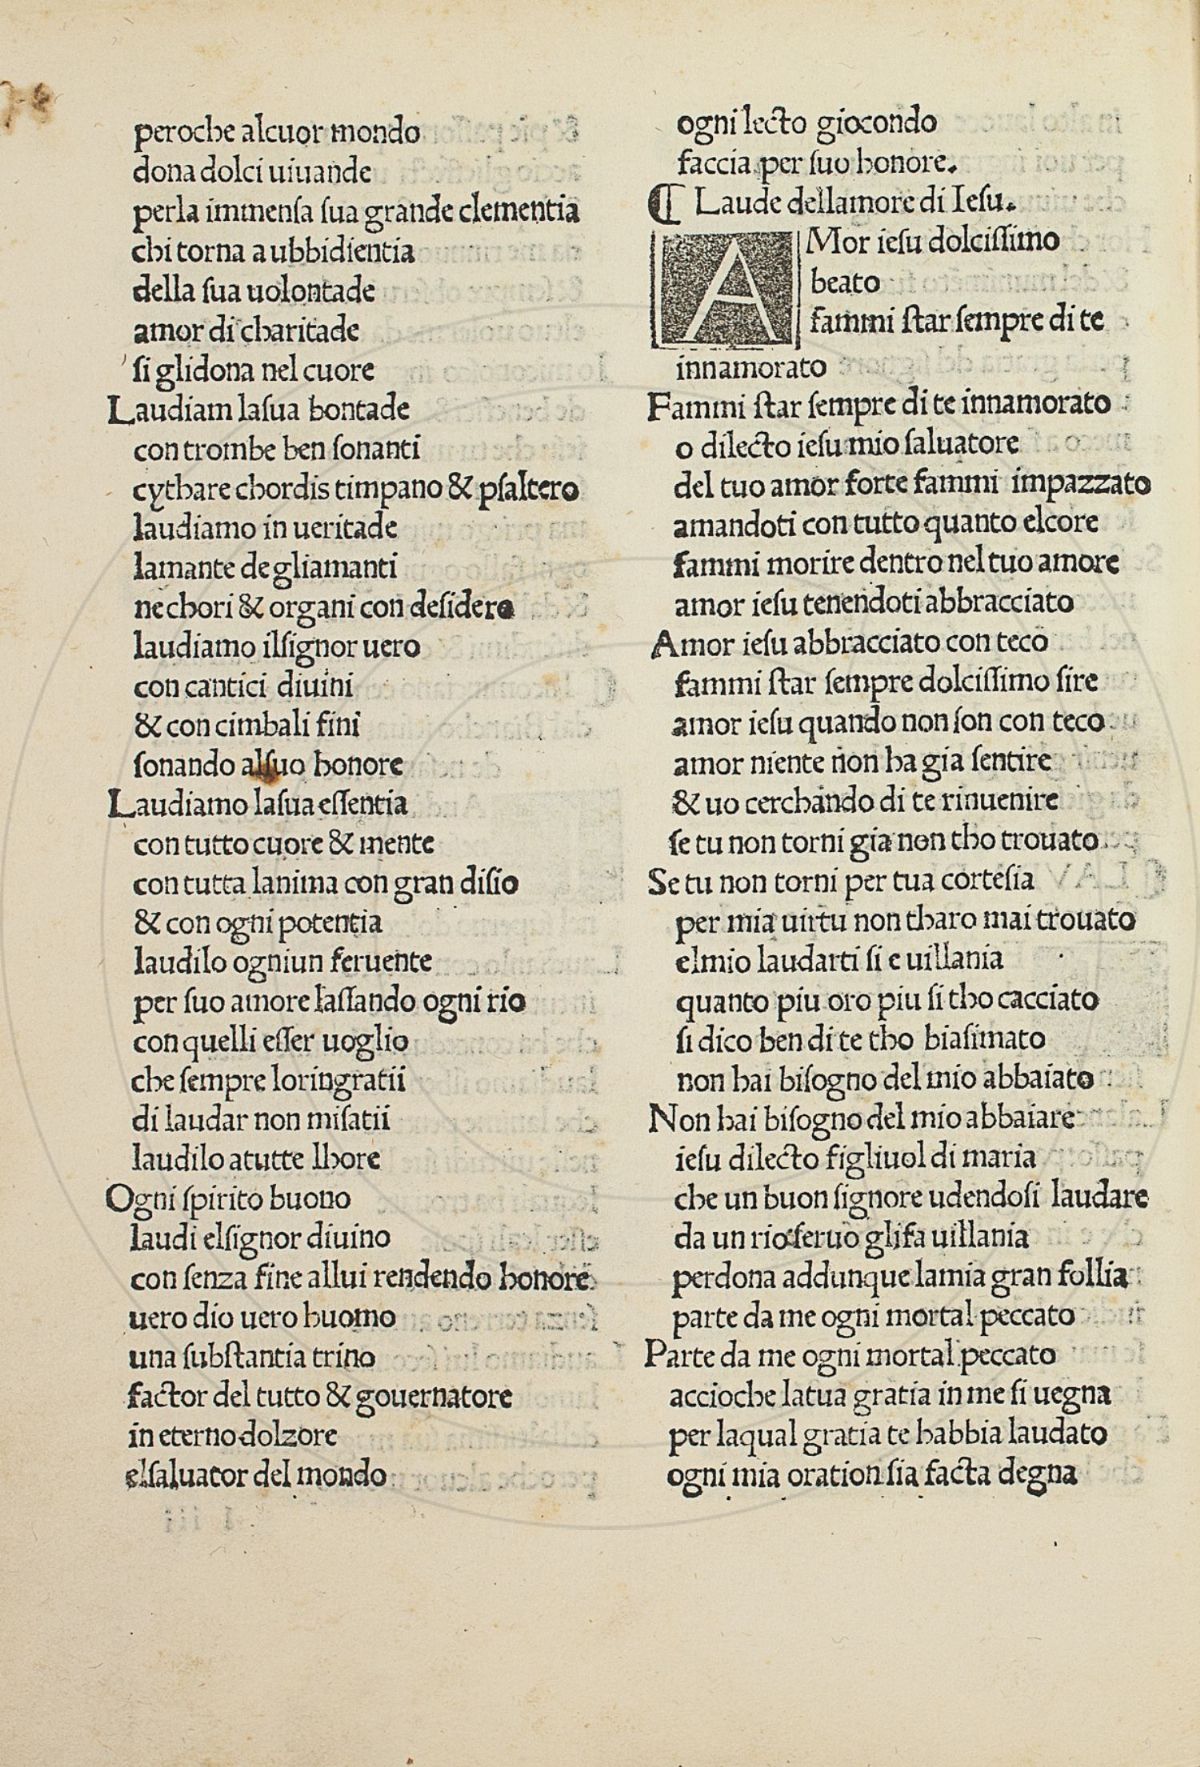 peroche alcuor mondo
dona dolci uiuande
perla immensa sua grande clementia
chi torna a ubbidientia
della sua uolontade
amor di charitade
si glidona nel cuore
Laudiam lasua bontade
con trombe ben sonanti
cythare chordis timpano & psaltero
laudiamo in ueritade
lamante de gliamanti
ne chori & organi con desidero
laudiamo ilsignor uero
con cantici diuini
& con cimbali fini
sonando alsuo honore
Laudiamo lasua essentia
con tutto cuore & mente
con tutta lanima con gran disio
& con ogni potentia
laudilo ogniun feruente
per suo amore lassando ogni rio
con quelli esser uoglio
che sempre loringratii
di laudar non misatii
laudilo atutte lhore
Ogni spirito buono
laudi elsignor diuino
con senza fine allui rendendo honore
uero dio uero huomo
una substantia trino
factor del tutto & gouernatore
in eterno dolzore
elsaluator del mondo
ogni lecto giocondo
faccia per suo honore.
¶ Laude dellamore di Iesu.
AMor iesu dolcissimo
beato
fammi star sempre di te
innamorato
Fammi star sempre di te innamorato
o dilecto iesu mio saluatore
del tuo amor forte fammi impazzato
amandoti con tutto quanto elcore
fammi morire dentro nel tuo amore
amor iesu tenendoti abbracciato
Amor iesu abbracciato con teco
fammi star sempre dolcissimo sire
amor iesu quando non son con teco
amor niente non ha gia sentire
& uo cerchando di te rinuenire
se tu non torni gia non tho trouato
Se tu non torni per tua cortesia
per mia uirtu non tharo mai trouato
elmio laudarti si e uillania
quanto piu oro piu si tho cacciato
si dico ben di te tho biasimato
non hai bisogno del mio abbaiato
Non hai bisogno del mio abbaiare
iesu dilecto figliuol di maria
che un buon signore udendosi laudare
da un rio seruo glifa uillania
perdona addunque lamia gran follia
parte da me ogni mortal peccato
Parte da me ogni mortal peccato
accioche latua gratia in me si uegna
per laqual gratia te habbia laudato
ogni mia oration sia facta degna